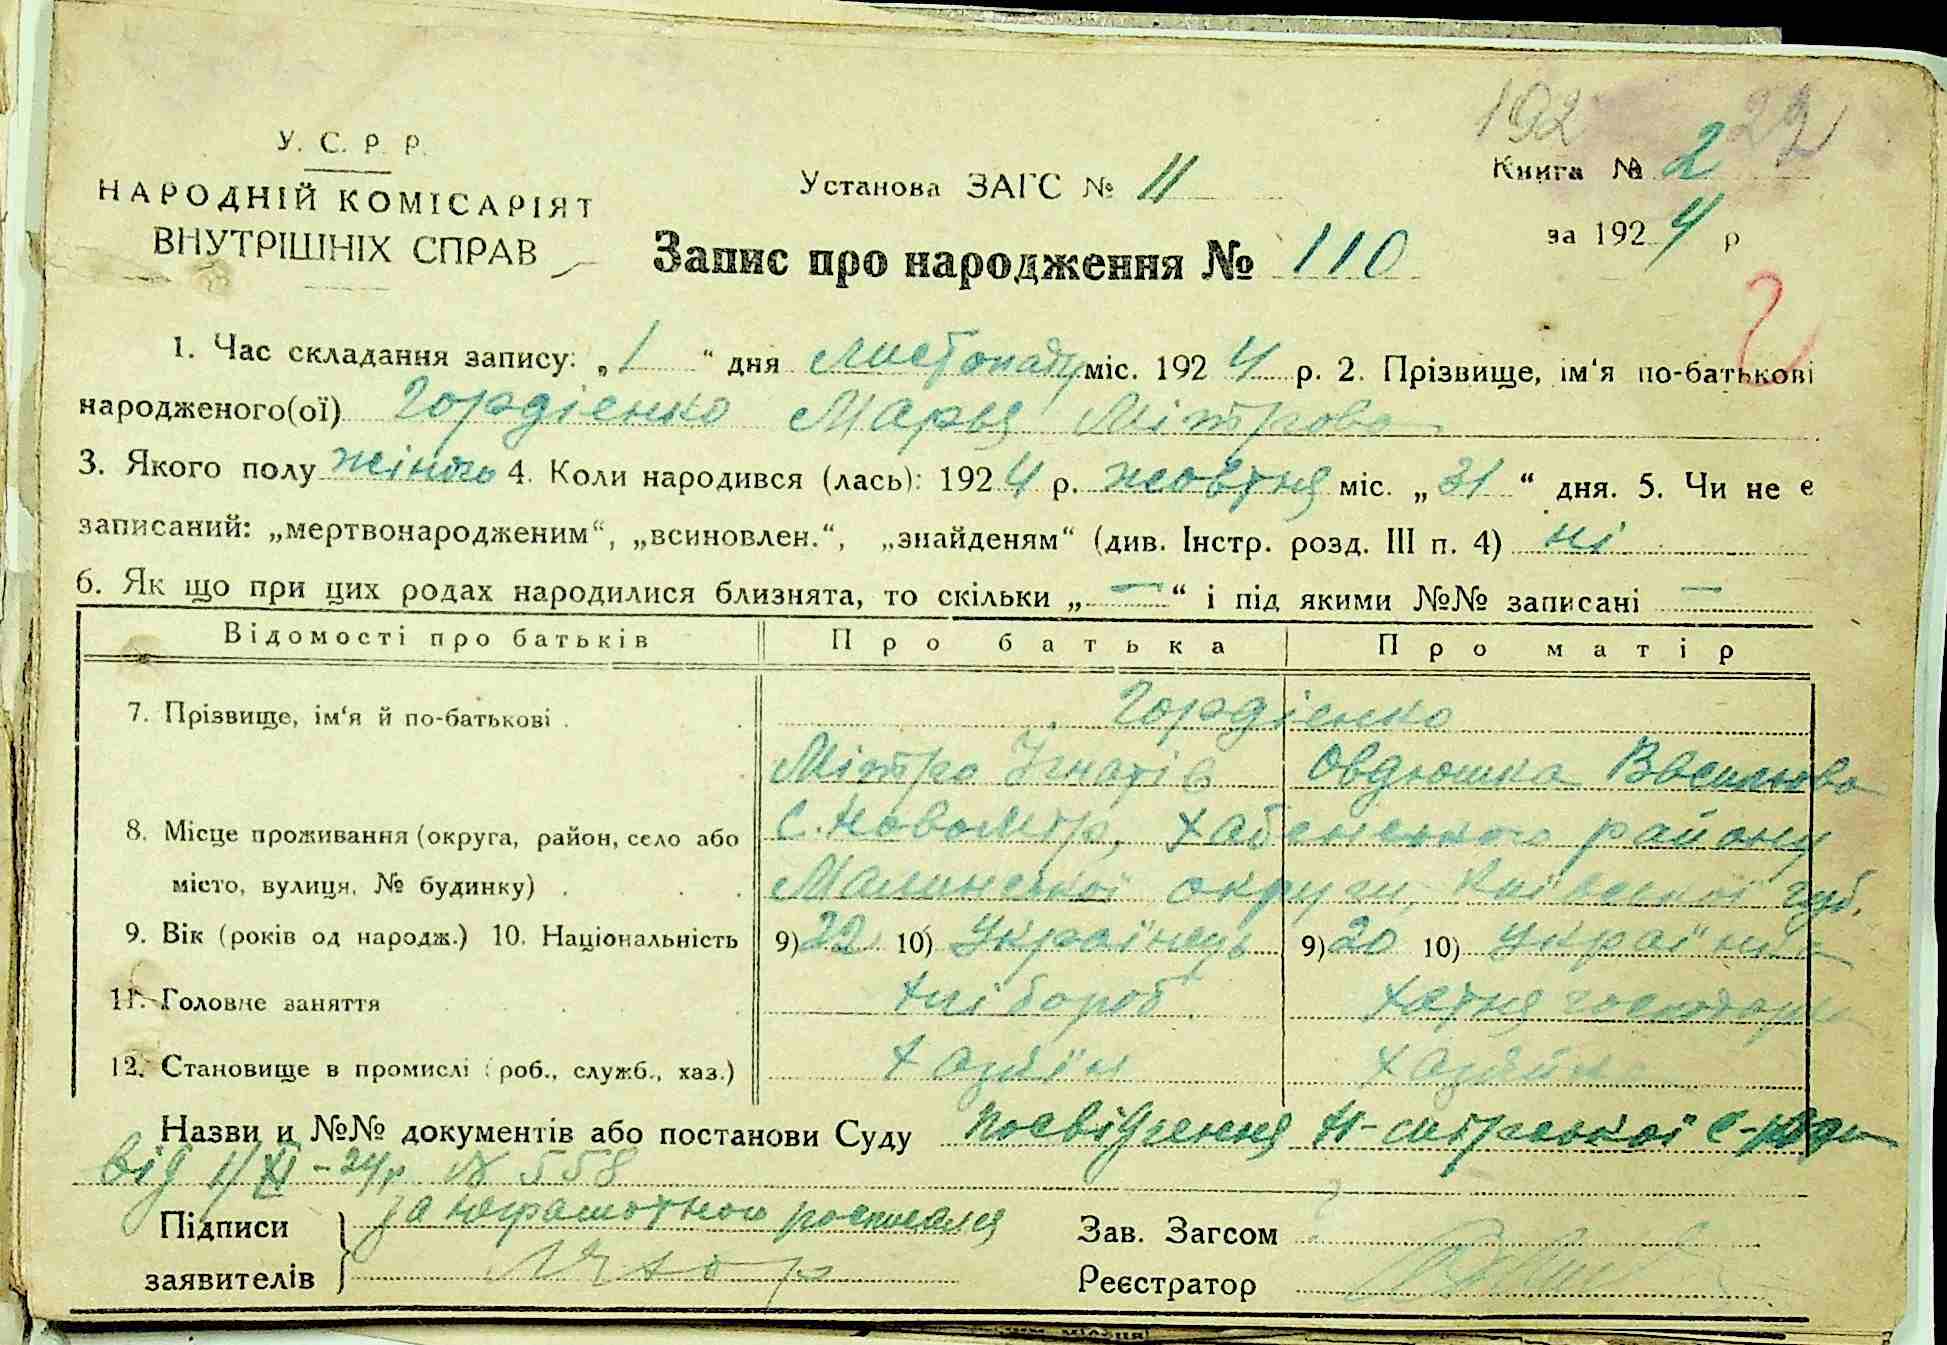 192 22
У. С. Р. Р.
НАРОДНІЙ КОМІСАРІЯТ
ВНУТРІШНІХ СПРАВ
Установа ЗАГС № 11
Книга № 2
за 1924 р
Запис про народження № 110
1. Час складання запису: „1“ дня листопаду міс. 1924 р. 2. Прізвище, ім‘я по-батькові
народженого(ої) Гордієнко Марья Мітрова
3. Якого полу жіного 4. Коли народився (лась): 1924 р. жовтня міс. „31“ дня. 5. Чи не є
записаний: „мертвонародженим“, „всиновлен.“, „знайденям“ (див. Інстр. розд. III п. 4) ні
6. Як що при цих родах народилися близнята, то скільки „—“ і під якими №№ записані —
Відомості про батьків Про батька Про матір
7. Прізвище, ім‘я й по-батькові . Гордієнко
Мітро Ігнатів Овдюшка Василюва
8. Місце проживання (округа, район, село або С. Новомір, Хабенського району
місто, вулиця, № будинку) . Малинської округи, Київської губ.
9. Вік (років од народж.) 10. Національність 9) 22 10) Українець 9) 20 10) Українка
11. Головне заняття Хлібороб Хатня господарк
12. Становище в промислі (роб., служб., хаз.) Хазяїн Хазяйка
Назви и №№ документів або постанови Суду посвідчення Н-смірської С-ради
від 1/XI-24р № 558
Підписи за неграмотного росписался
заявителів
Зав. Загсом
Реєстратор